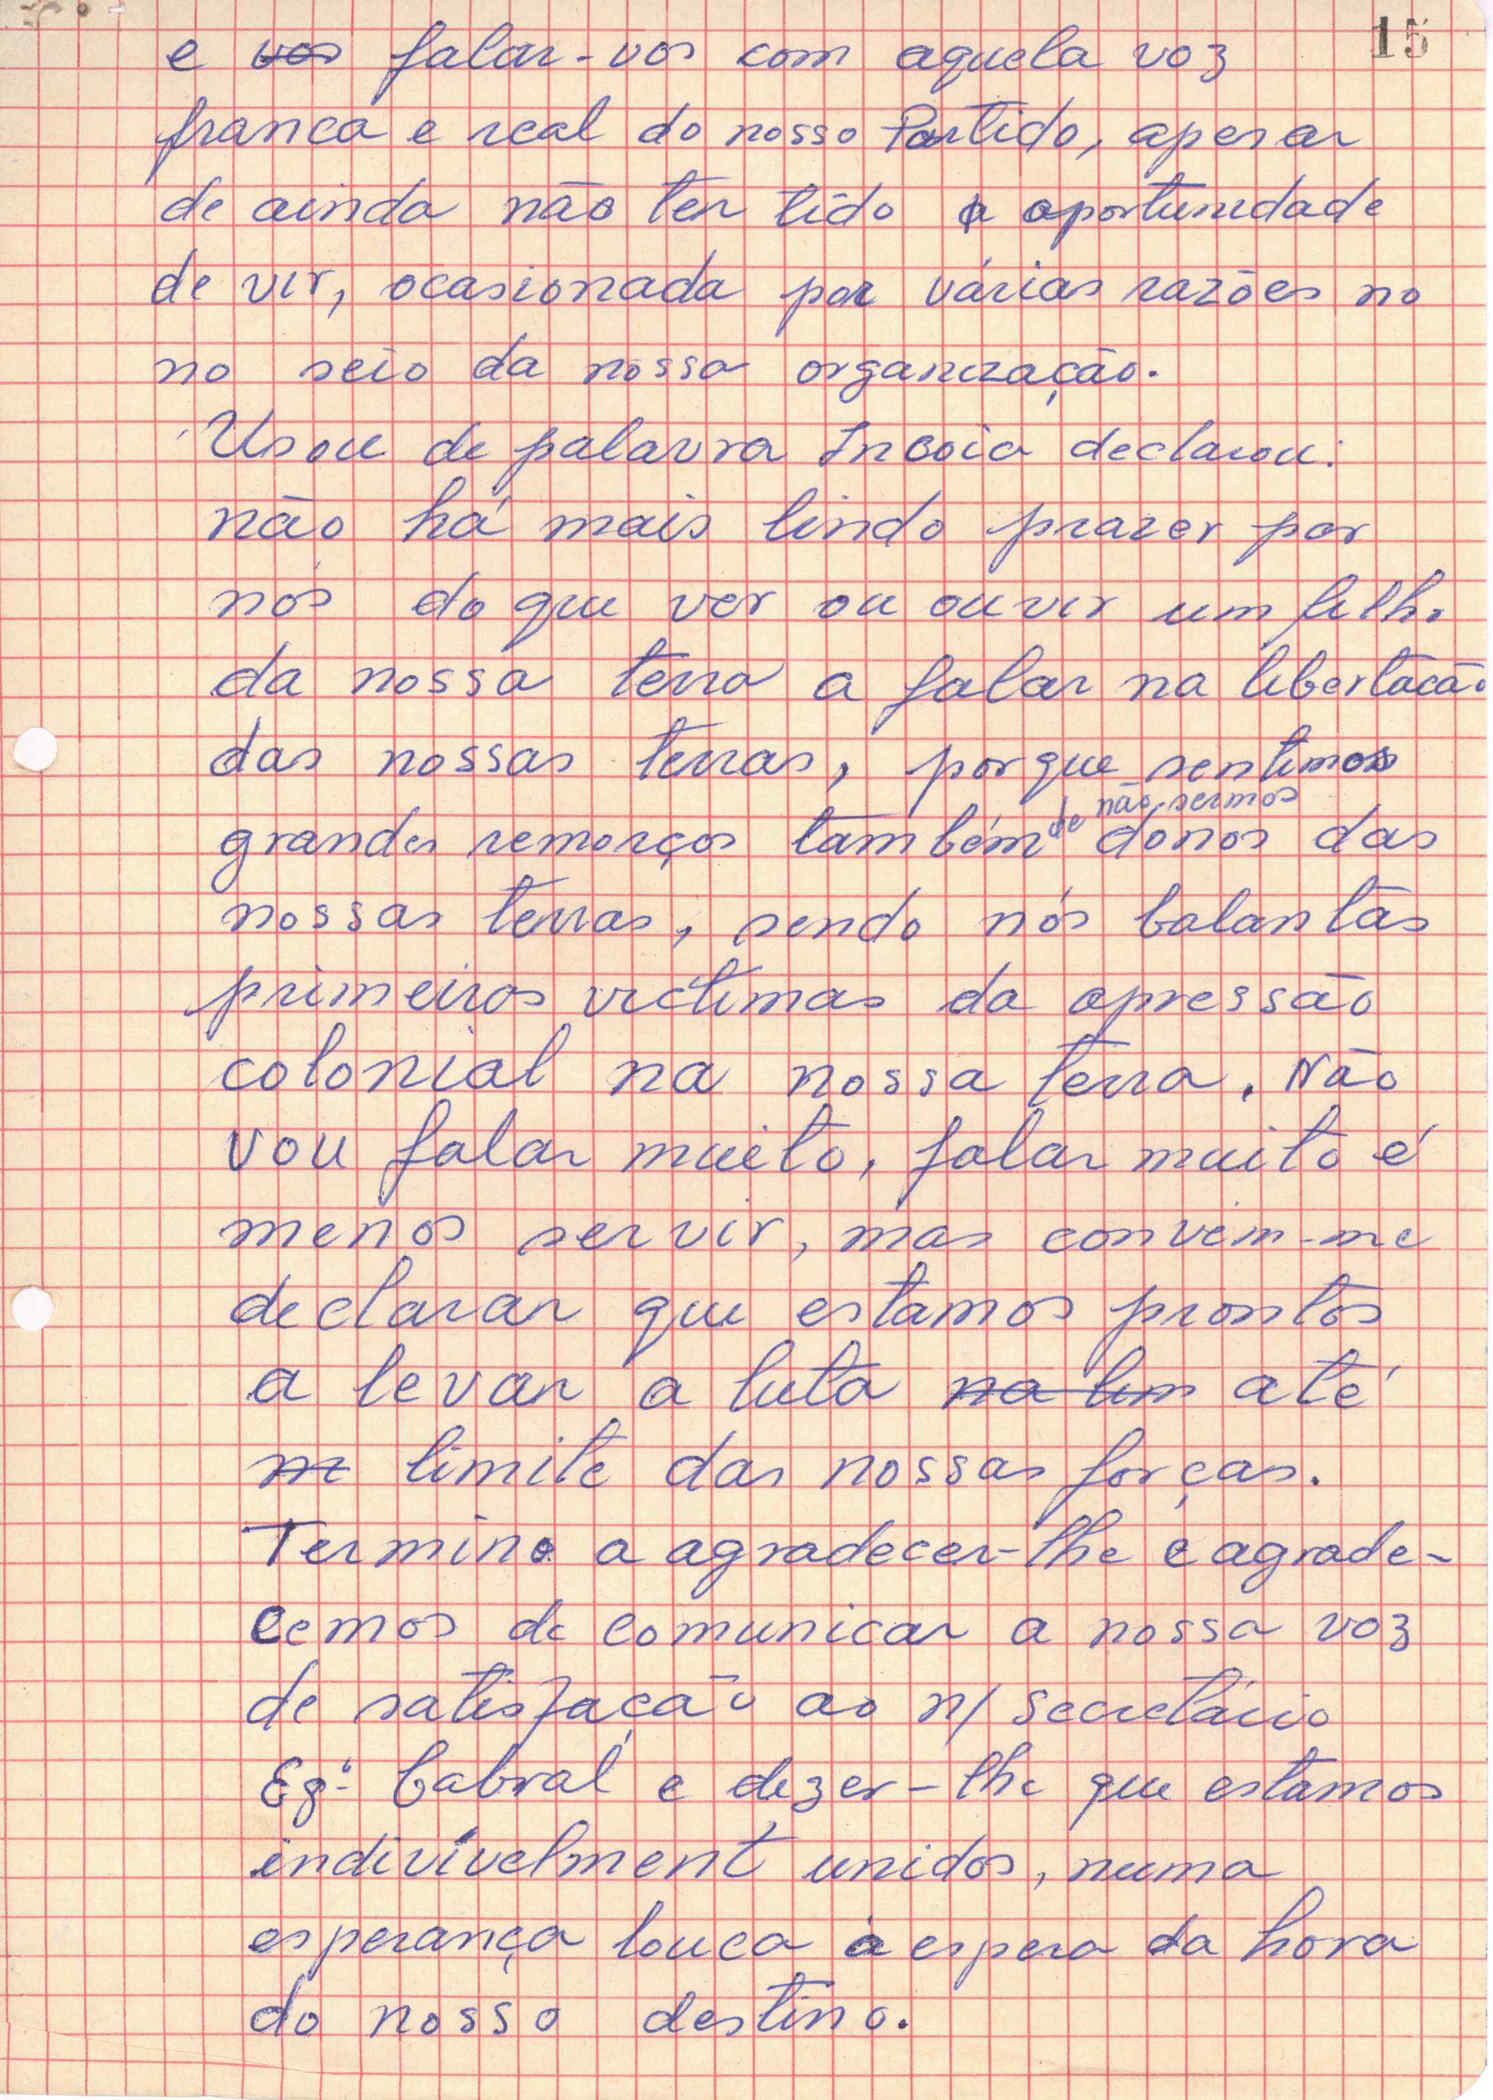 15
e vos falar-vos com aquela voz
franca e real do nosso Partido, apesar
de ainda não ter tido a oportunidade
de vir, ocasionada por várias razões no
no seio da nossa organização.
Usou de palavra Incoia declarou:
não há mais lindo prazer por
nós do que ver ou ouvir um filho
da nossa terra a falar na libertacão
das nossas terras, porque sentimos
de não sermos
grandes remorços também donos das
nossas terras, sendo nós balantas
primeiros victimas da opressão
colonial na nossa terra. Não
vou falar muito, falar muito é
menos servir, mas convém-me
declarar que estamos prontos
a levar a luta na lim até
m limite das nossas forças.
Termino a agradecer-lhe e agrade-
cemos de comunicar a nossa voz
de satisfação ao n/ secretário
Egº Cabral e dizer-lhe que estamos
indivívelment unidos, numa
esperança louca à espera da hora
do nosso destino.